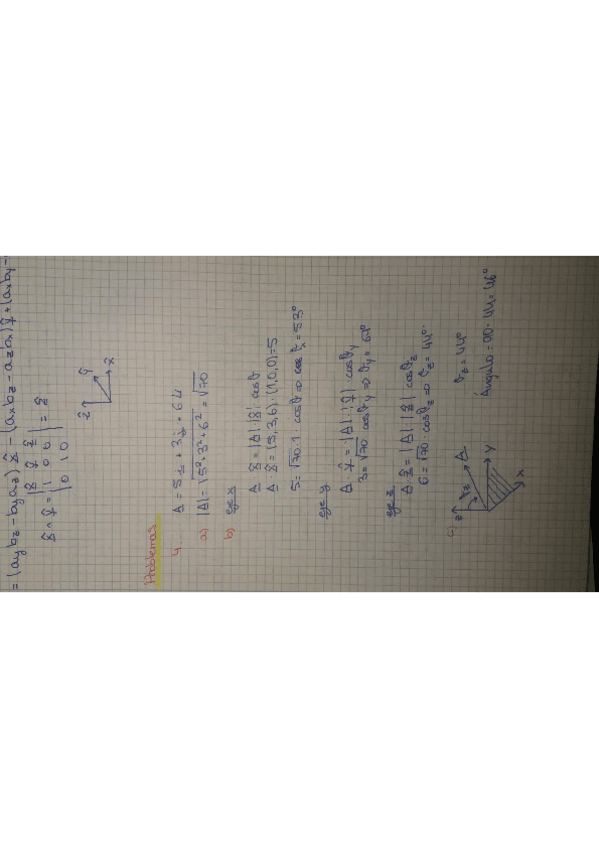 = (aybz - byaz) x̂ - (axbz - azbx) ŷ + (axby -
x̂ ∧ ŷ = | x̂ ŷ ẑ | = ẑ
1 0 0
0 1 0
ẑ
ŷ
x̂
Problemas
4. A = 5i + 3j + 6k
a) |A| = √5² + 3² + 6² = √70
b) eje x
A · x̂ = |A| · |x̂| · cosθ
A · x̂ = (5, 3, 6) · (1,0,0) = 5
5 = √70 · 1 · cosθ ⇒ θx = 53°
eje y
A · ŷ = |A| · |ŷ| cosθy
3 = √70 cosθy ⇒ θy = 69°
eje z
A · ẑ = |A| · |ẑ| cosθz
6 = √70 · cosθz ⇒ θz = 44°
c) z
θz
A
y
x
θz = 44°
Ángulo = 90 - 44 = 46°